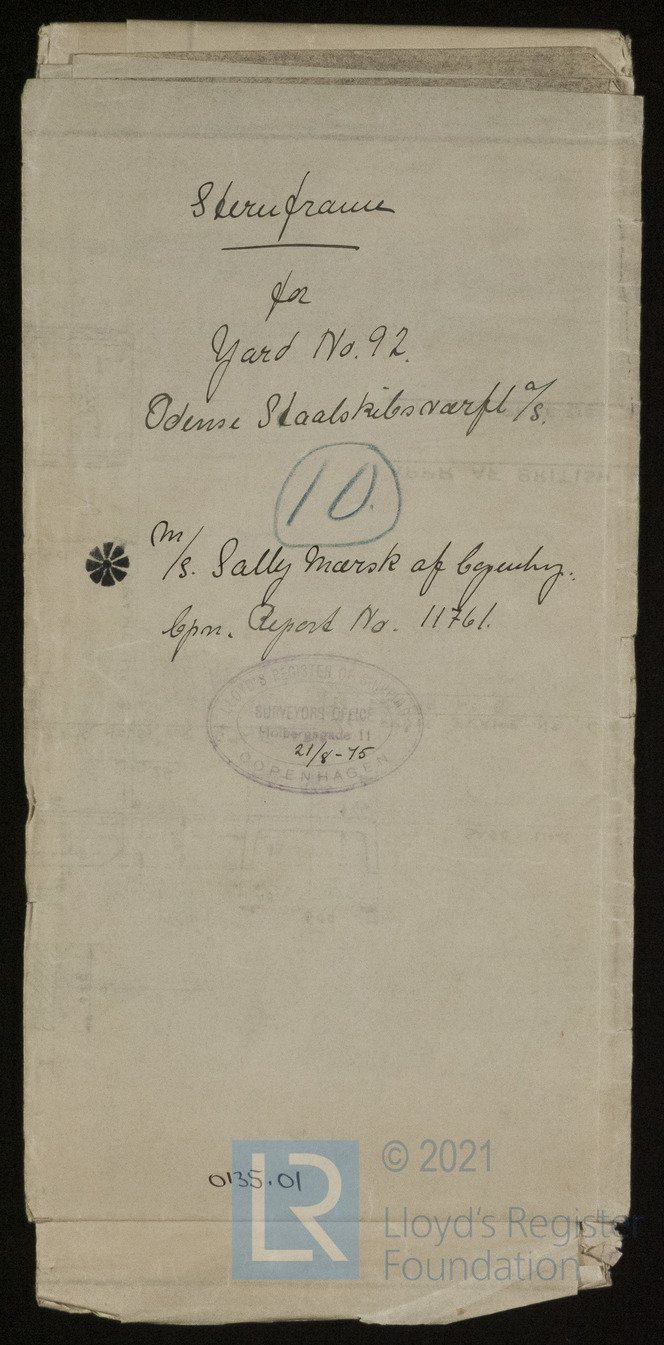 Sternframe
for
Yard No. 92.
Odense Staalskibsværft a/s.
10.
m/s. Sally Mærsk af Copenhg.
Cpn. Report No. 11761.
LLOYD'S REGISTER OF SHIPPING
SURVEYORS OFFICE
Holbergsgade 11
21/8-45
COPENHAGEN
0135.01
LR
© 2021
Lloyd's Register
Foundation